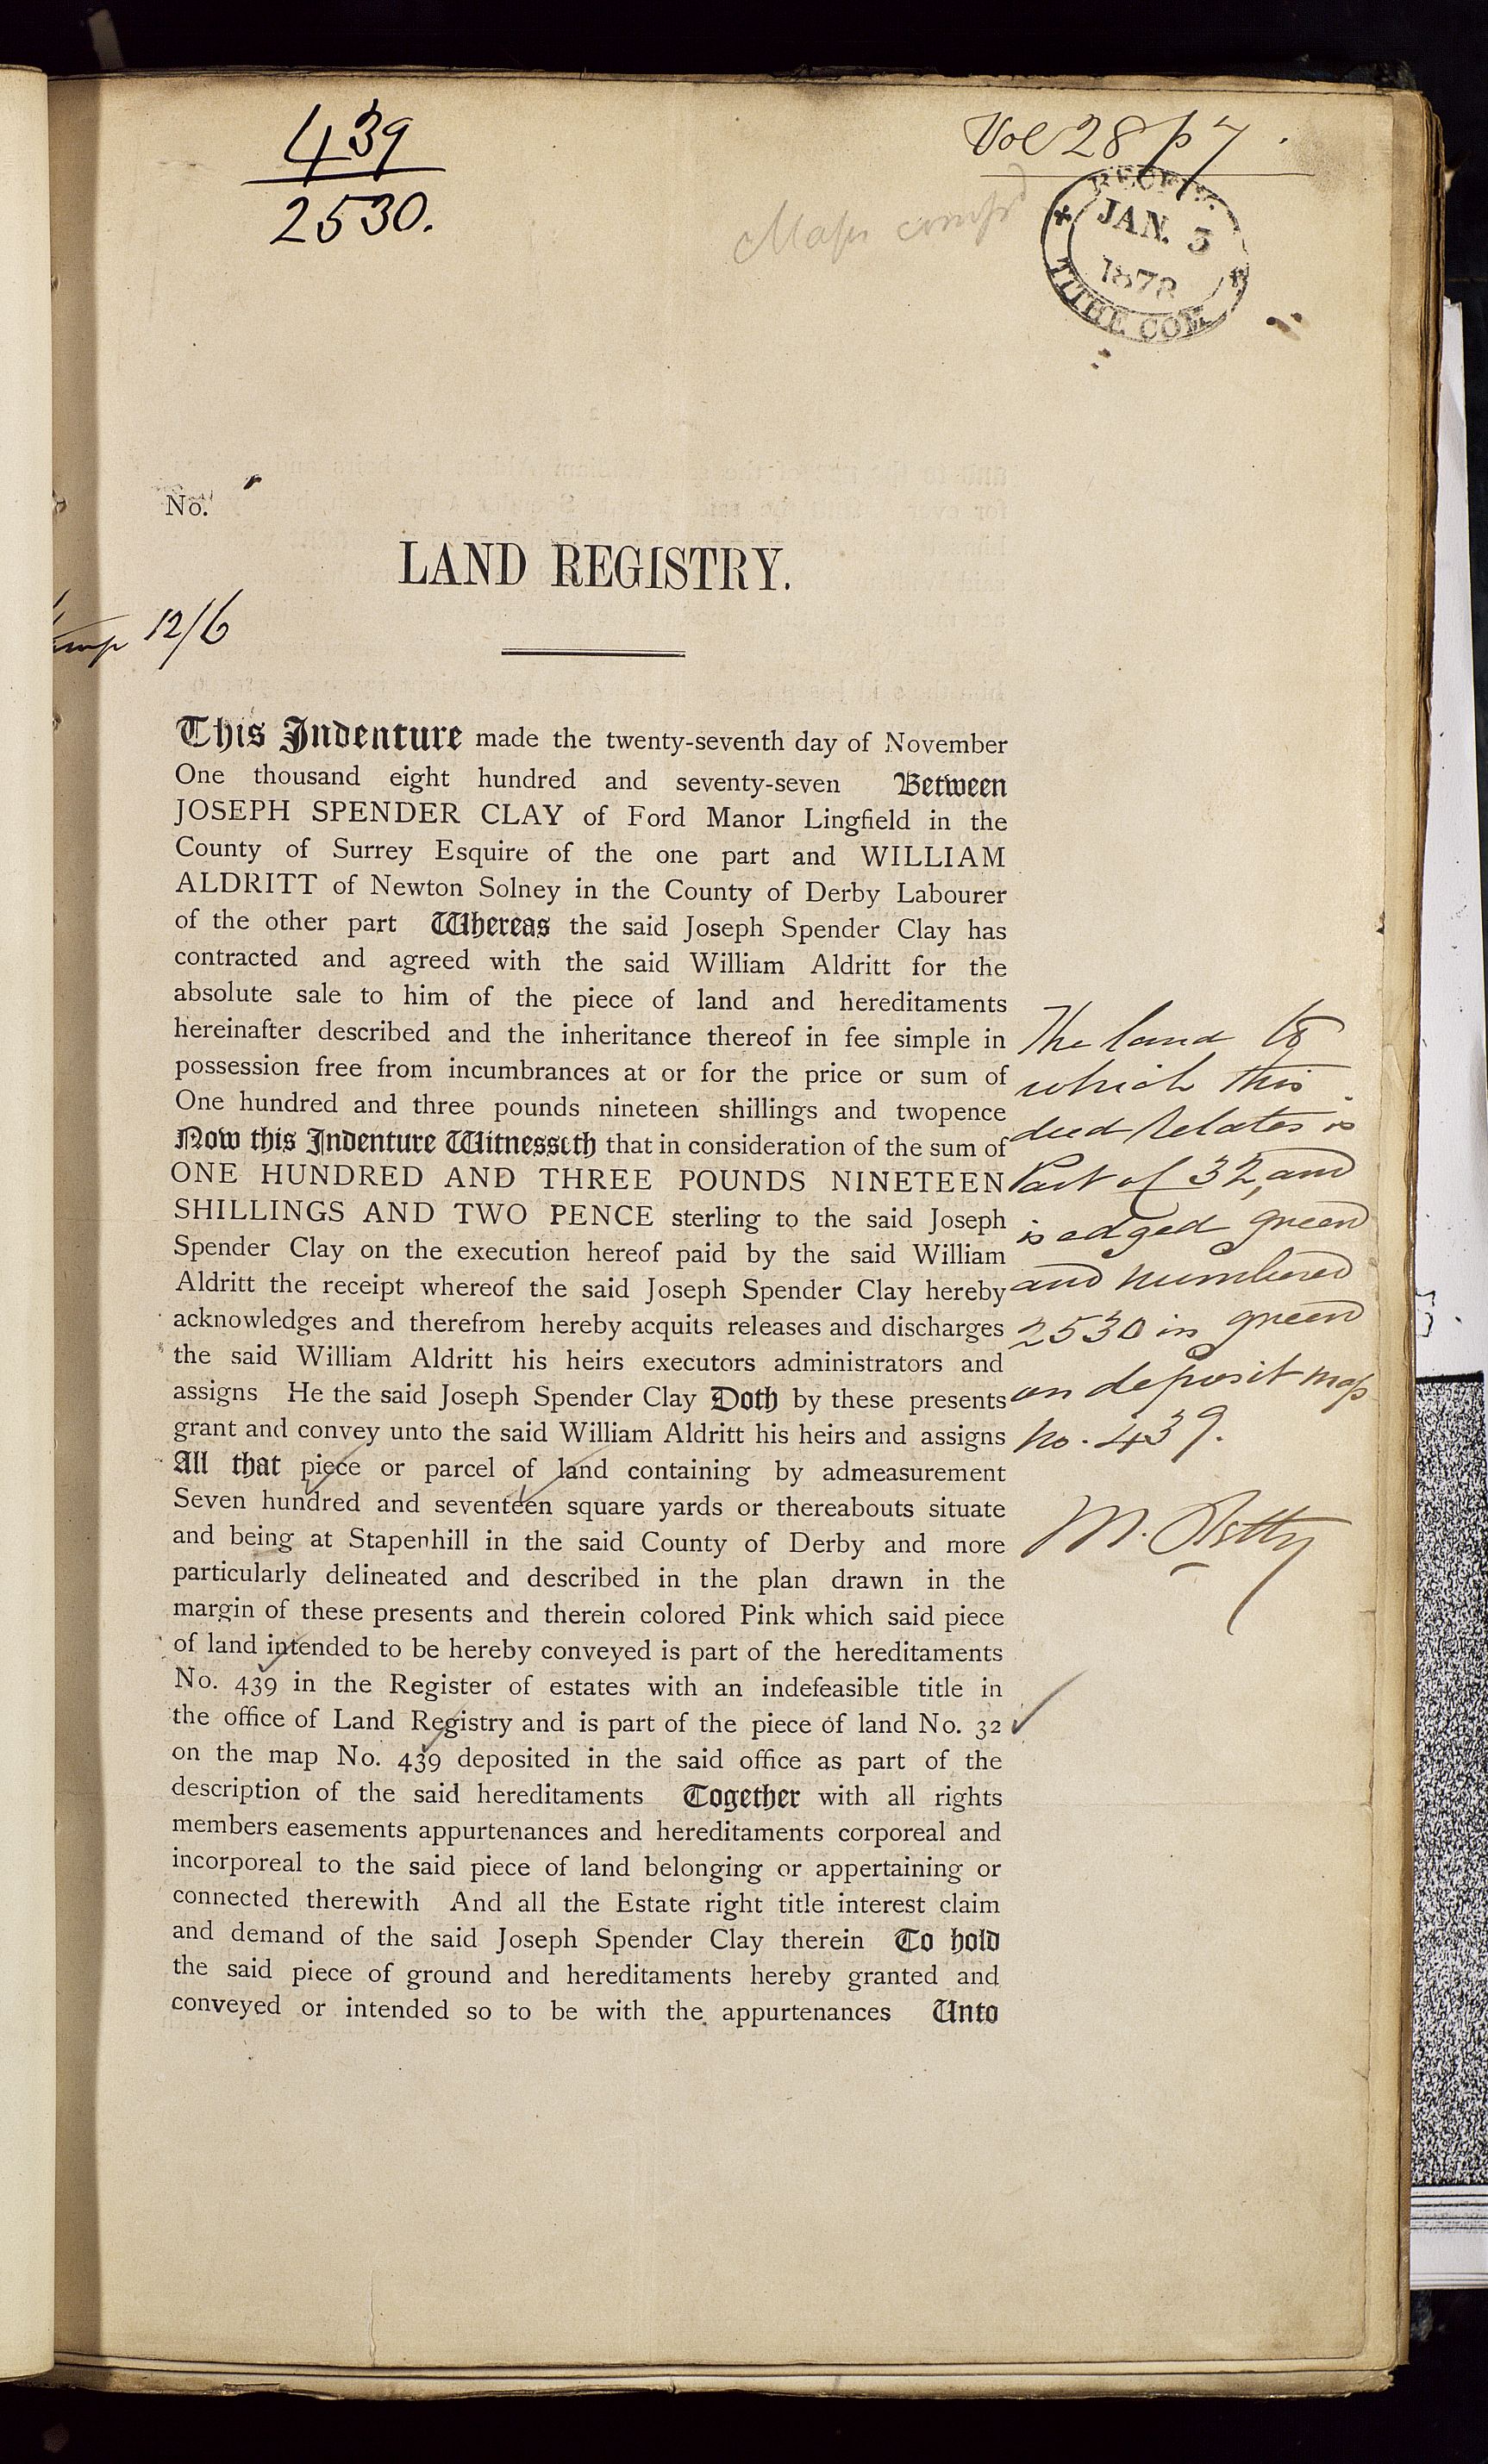 439
2530.
Vol 28 p 7.
Maps comp^d
JAN. 3
1878
TITHE COM
No.
LAND REGISTRY.
12/6
This Indenture made the twenty-seventh day of November
One thousand eight hundred and seventy-seven Between
JOSEPH SPENDER CLAY of Ford Manor Lingfield in the
County of Surrey Esquire of the one part and WILLIAM
ALDRITT of Newton Solney in the County of Derby Labourer
of the other part Whereas the said Joseph Spender Clay has
contracted and agreed with the said William Aldritt for the
absolute sale to him of the piece of land and hereditaments
hereinafter described and the inheritance thereof in fee simple in
possession free from incumbrances at or for the price or sum of
One hundred and three pounds nineteen shillings and twopence
Now this Indenture Witnesseth that in consideration of the sum of
ONE HUNDRED AND THREE POUNDS NINETEEN
SHILLINGS AND TWO PENCE sterling to the said Joseph
Spender Clay on the execution hereof paid by the said William
Aldritt the receipt whereof the said Joseph Spender Clay hereby
acknowledges and therefrom hereby acquits releases and discharges
the said William Aldritt his heirs executors administrators and
assigns He the said Joseph Spender Clay Doth by these presents
grant and convey unto the said William Aldritt his heirs and assigns
All that piece or parcel of land containing by admeasurement
Seven hundred and seventeen square yards or thereabouts situate
and being at Stapenhill in the said County of Derby and more
particularly delineated and described in the plan drawn in the
margin of these presents and therein colored Pink which said piece
of land intended to be hereby conveyed is part of the hereditaments
No. 439 in the Register of estates with an indefeasible title in
the office of Land Registry and is part of the piece of land No. 32
on the map No. 439 deposited in the said office as part of the
description of the said hereditaments Together with all rights
members easements appurtenances and hereditaments corporeal and
incorporeal to the said piece of land belonging or appertaining or
connected therewith And all the Estate right title interest claim
and demand of the said Joseph Spender Clay therein To hold
the said piece of ground and hereditaments hereby granted and
conveyed or intended so to be with the appurtenances Unto
The land to
which this
deed relates is
Part of 32, and
is edged green
and numbered
2530 in green
on deposit map
No. 439.